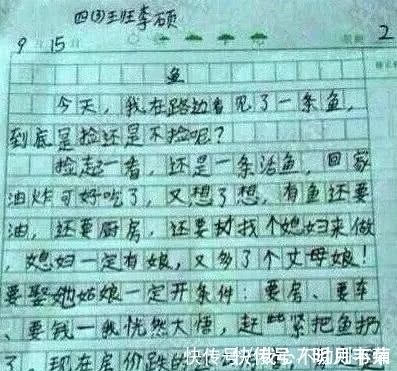 四(3)班李硕
9 15 2
鱼
今天,我在路边看见了一条鱼,
到底是捡还是不捡呢?
捡起一看,还是一条活鱼,回家
油炸可好吃了,又想了想,有鱼还要
油,还要厨房,还要找个媳妇来做
,媳妇一定有娘,又多了个丈母娘!
要娶她姑娘一定开条件:要房、要车
、要钱—我恍然大悟,赶紧把鱼扔
了,现在房价跌的
快传号